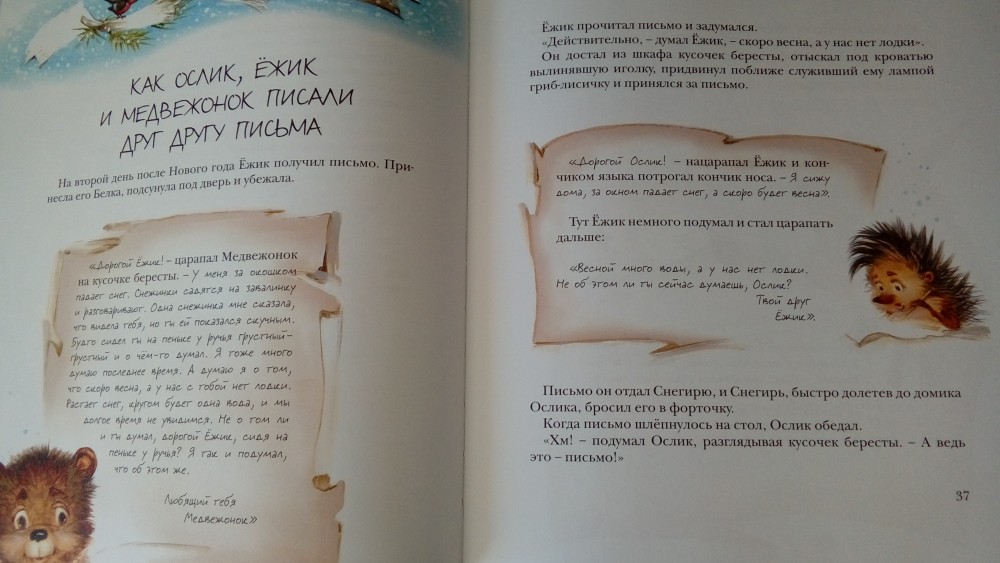 КАК ОСЛИК, ЁЖИК
И МЕДВЕЖОНОК ПИСАЛИ
ДРУГ ДРУГУ ПИСЬМА
На второй день после Нового года Ёжик получил письмо. При-
несла его Белка, подсунула под дверь и убежала.
«Дорогой Ёжик! – царапал Медвежонок
на кусочке бересты. – У меня за окошком
падает снег. Снежинки садятся на завалинку
и разговаривают. Одна снежинка мне сказала,
что видела тебя, но ты ей показался скучным.
Будто сидел ты на пеньке у ручья грустный-
грустный и о чём-то думал. Я тоже много
думаю последнее время. А думаю я о том,
что скоро весна, а у нас с тобой нет лодки.
Растает снег, кругом будет одна вода, и мы
долгое время не увидимся. Не о том ли
и ты думал, дорогой Ёжик, сидя на
пеньке у ручья? Я так и подумал,
что об этом же.
Любящий тебя
Медвежонок»
Ёжик прочитал письмо и задумался.
«Действительно, – думал Ёжик, – скоро весна, а у нас нет лодки».
Он достал из шкафа кусочек бересты, отыскал под кроватью
вылинявшую иголку, придвинул поближе служивший ему лампой
гриб-лисичку и принялся за письмо.
«Дорогой Ослик! – нацарапал Ёжик и кон-
чиком языка потрогал кончик носа. – Я сижу
дома, за окном падает снег, а скоро будет весна».
Тут Ёжик немного подумал и стал царапать
дальше:
«Весной много воды, а у нас нет лодки.
Не об этом ли ты сейчас думаешь, Ослик?
Твой друг
Ёжик».
Письмо он отдал Снегирю, и Снегирь, быстро долетев до домика
Ослика, бросил его в форточку.
Когда письмо шлёпнулось на стол, Ослик обедал.
«Хм! – подумал Ослик, разглядывая кусочек бересты. – А ведь
это – письмо!»
37